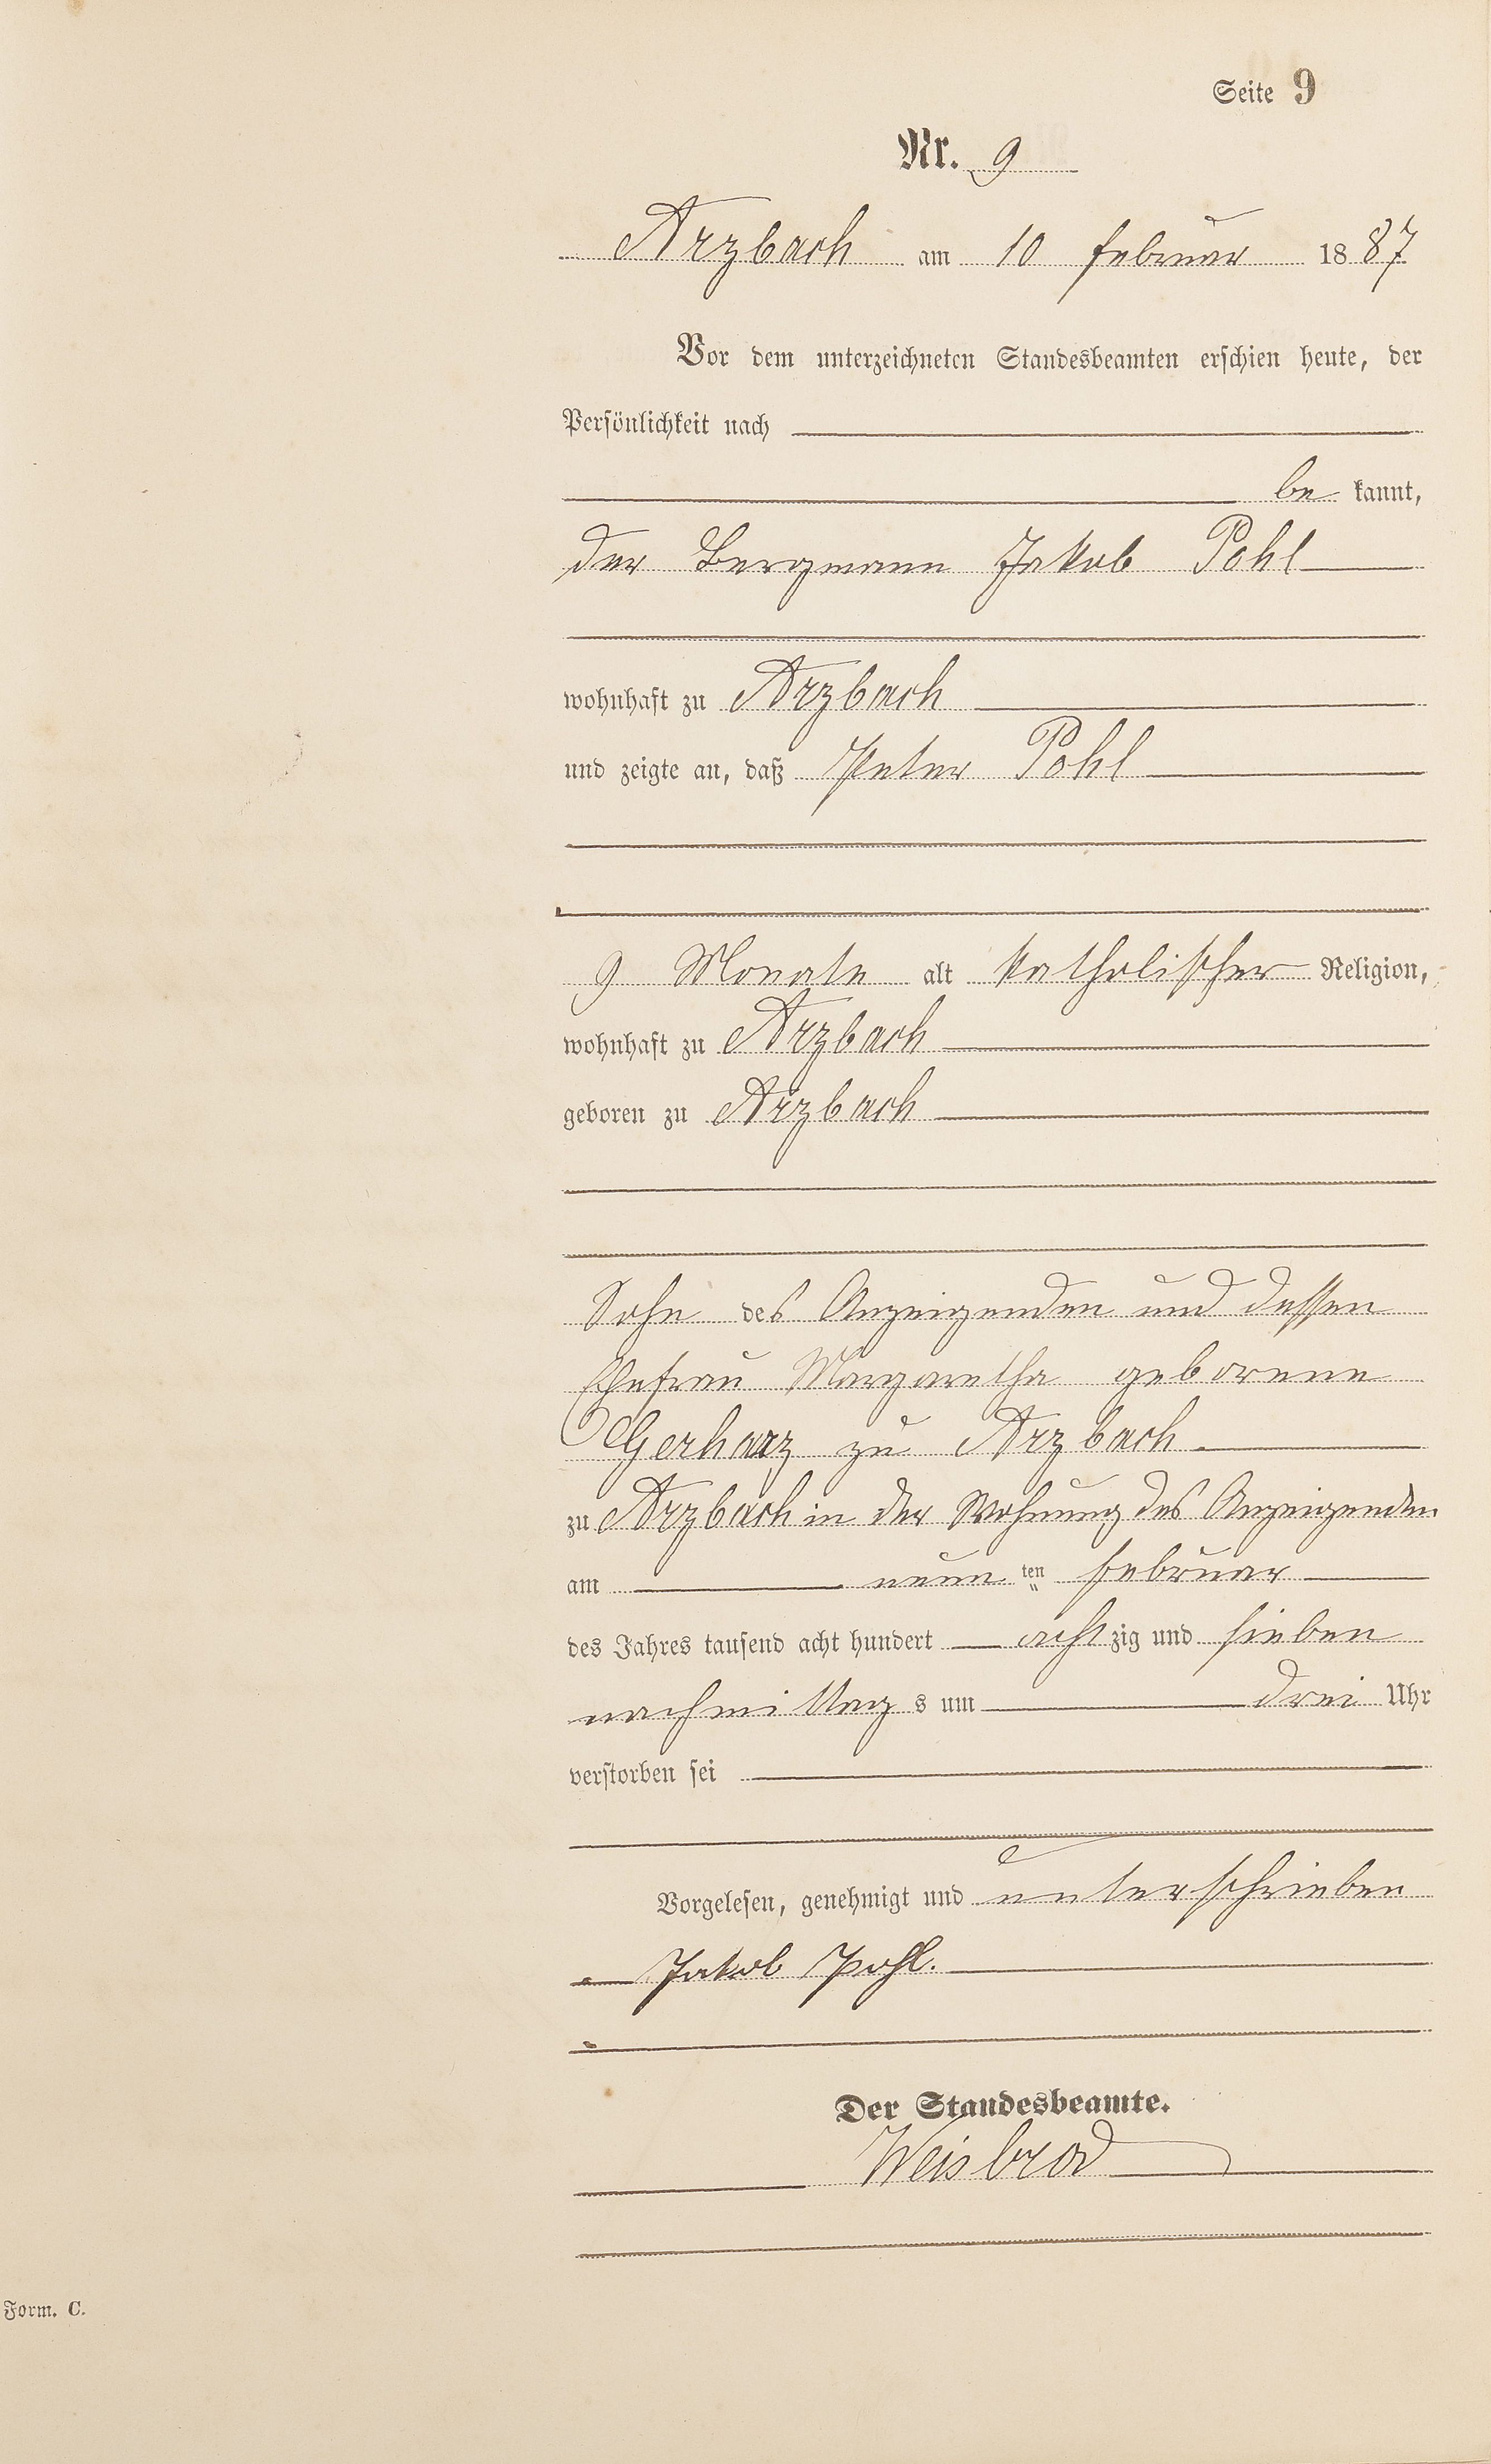 Seite 9
Nr. 9
Arzbach am 10 Februar 1887
Vor dem unterzeichneten Standesbeamten erschien heute, der
Persönlichkeit nach
be kannt,
der Bergmann Jakob Pohl
wohnhaft zu Arzbach
und zeigte an, daß Peter Pohl
9 Monate alt katholischer Religion,
wohnhaft zu Arzbach
geboren zu Arzbach
Sohn des Anzeigenden und dessen
Ehefrau Margaretha geborene
Gerharz zu Arzbach
zu Arzbach in der Wohnung des Anzeigenden
am neun ten Februar
des Jahres tausend acht hundert acht zig und sieben
nachmittag s um drei Uhr
verstorben sei
Vorgelesen, genehmigt und unterschrieben
Jakob Pohl.
Der Standesbeamte.
Weisbrod
Form. C.